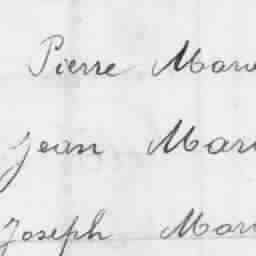 Pierre Mari
Jean Mari
Joseph Mari